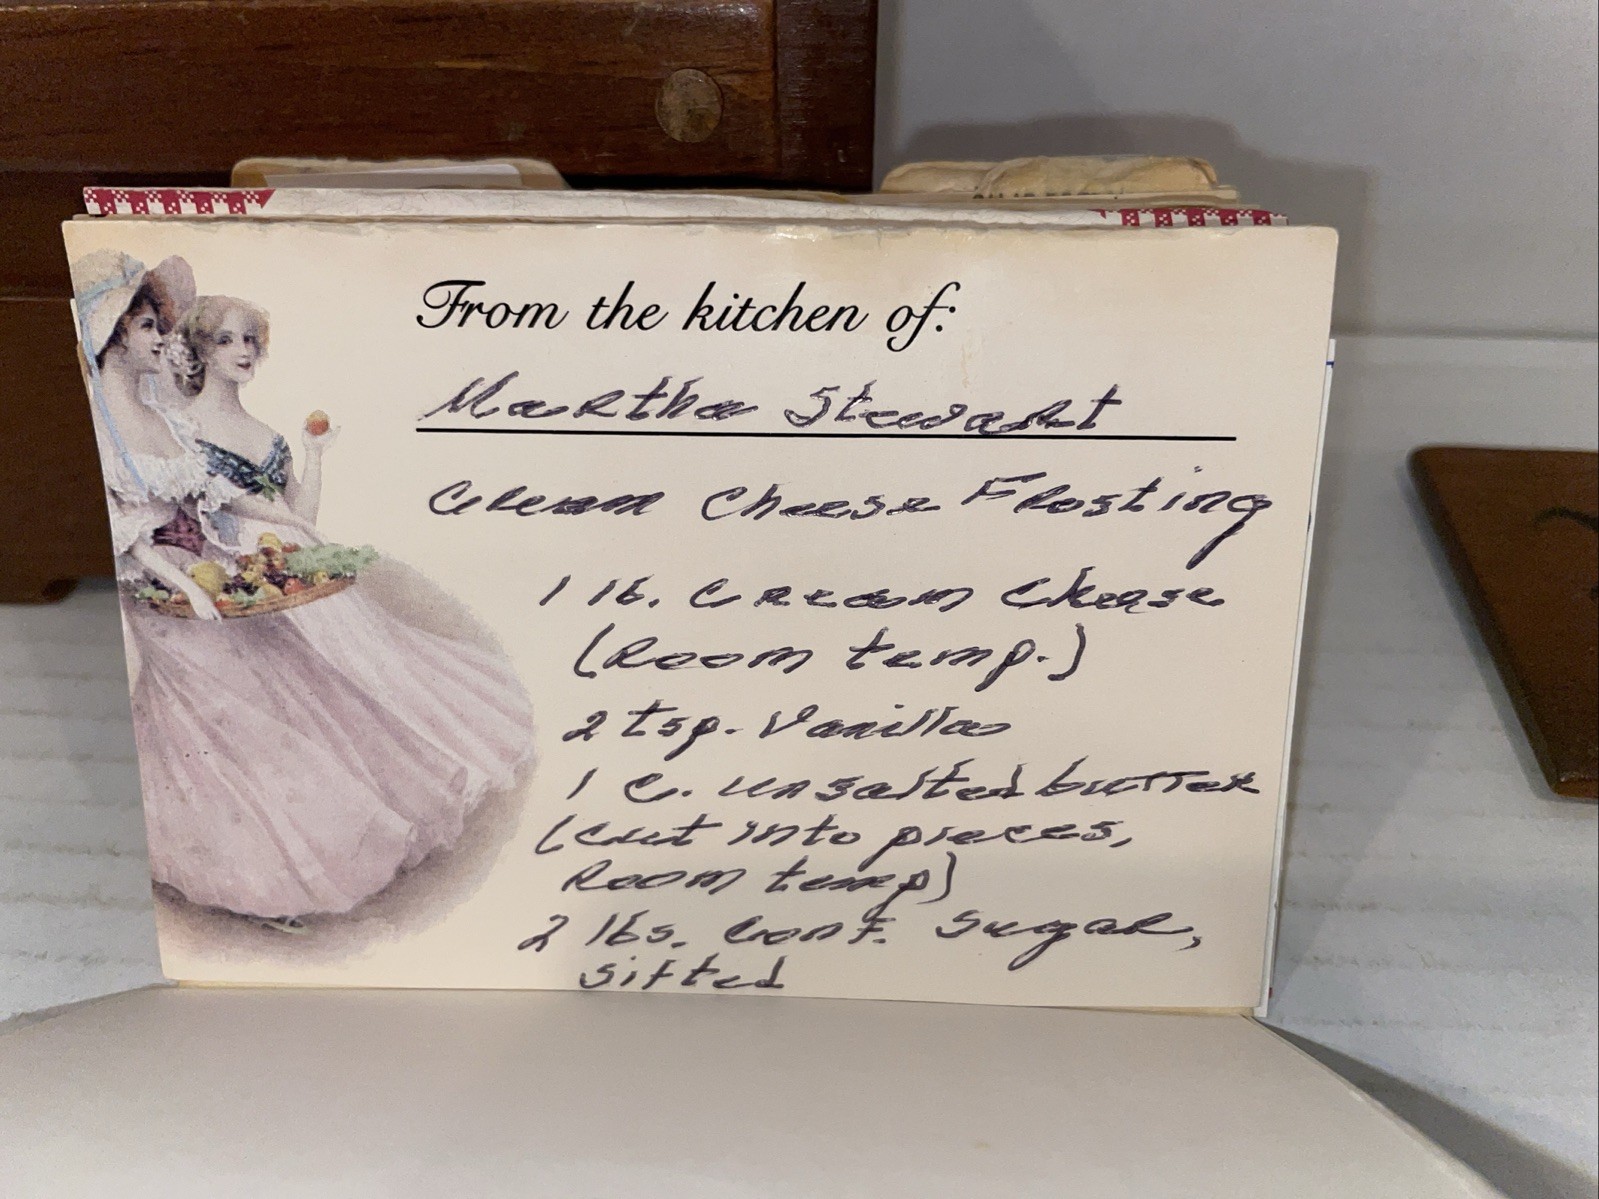 From the kitchen of:
Martha Stewart
Cream Cheese Frosting
1 lb. Cream Cheese
(Room temp.)
2 tsp. Vanilla
1 C. unsalted butter
(cut into pieces,
Room temp)
2 lbs. Conf. Sugar,
sifted